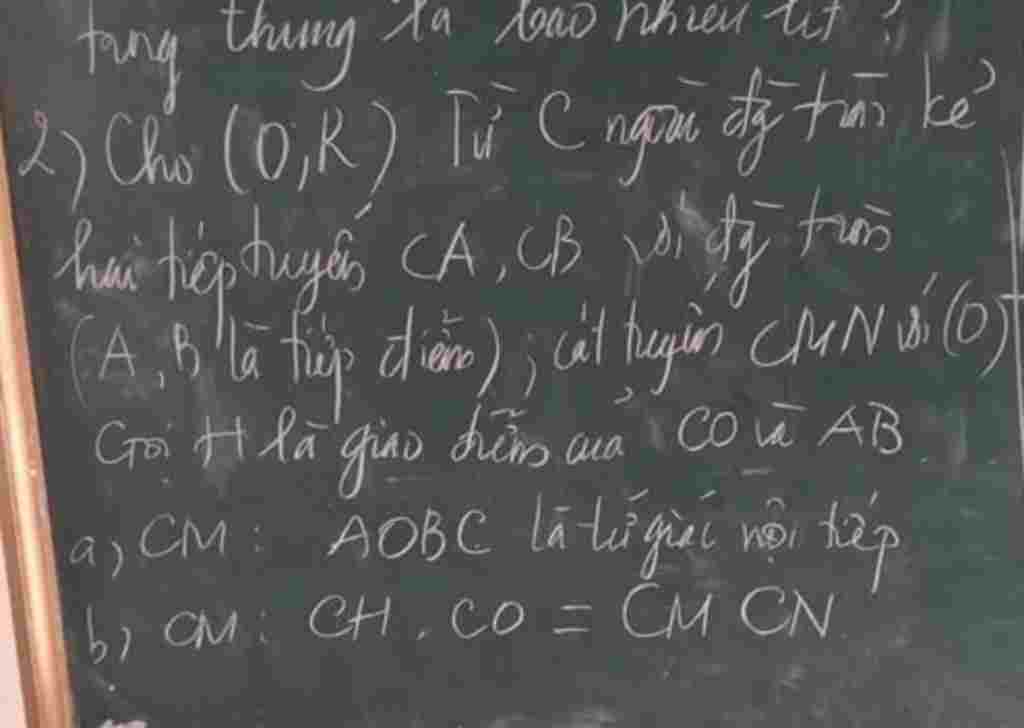 từng thùng là bao nhiêu lít?
2) Cho (O;R) Từ C ngoài đg tròn kẻ
hai tiếp tuyến CA, CB với đg tròn
(A, B là tiếp điểm); cát tuyến CMN với (O)
Gọi H là giao điểm của CO và AB.
a) CM: AOBC là tứ giác nội tiếp
b) CM: CH. CO = CM CN